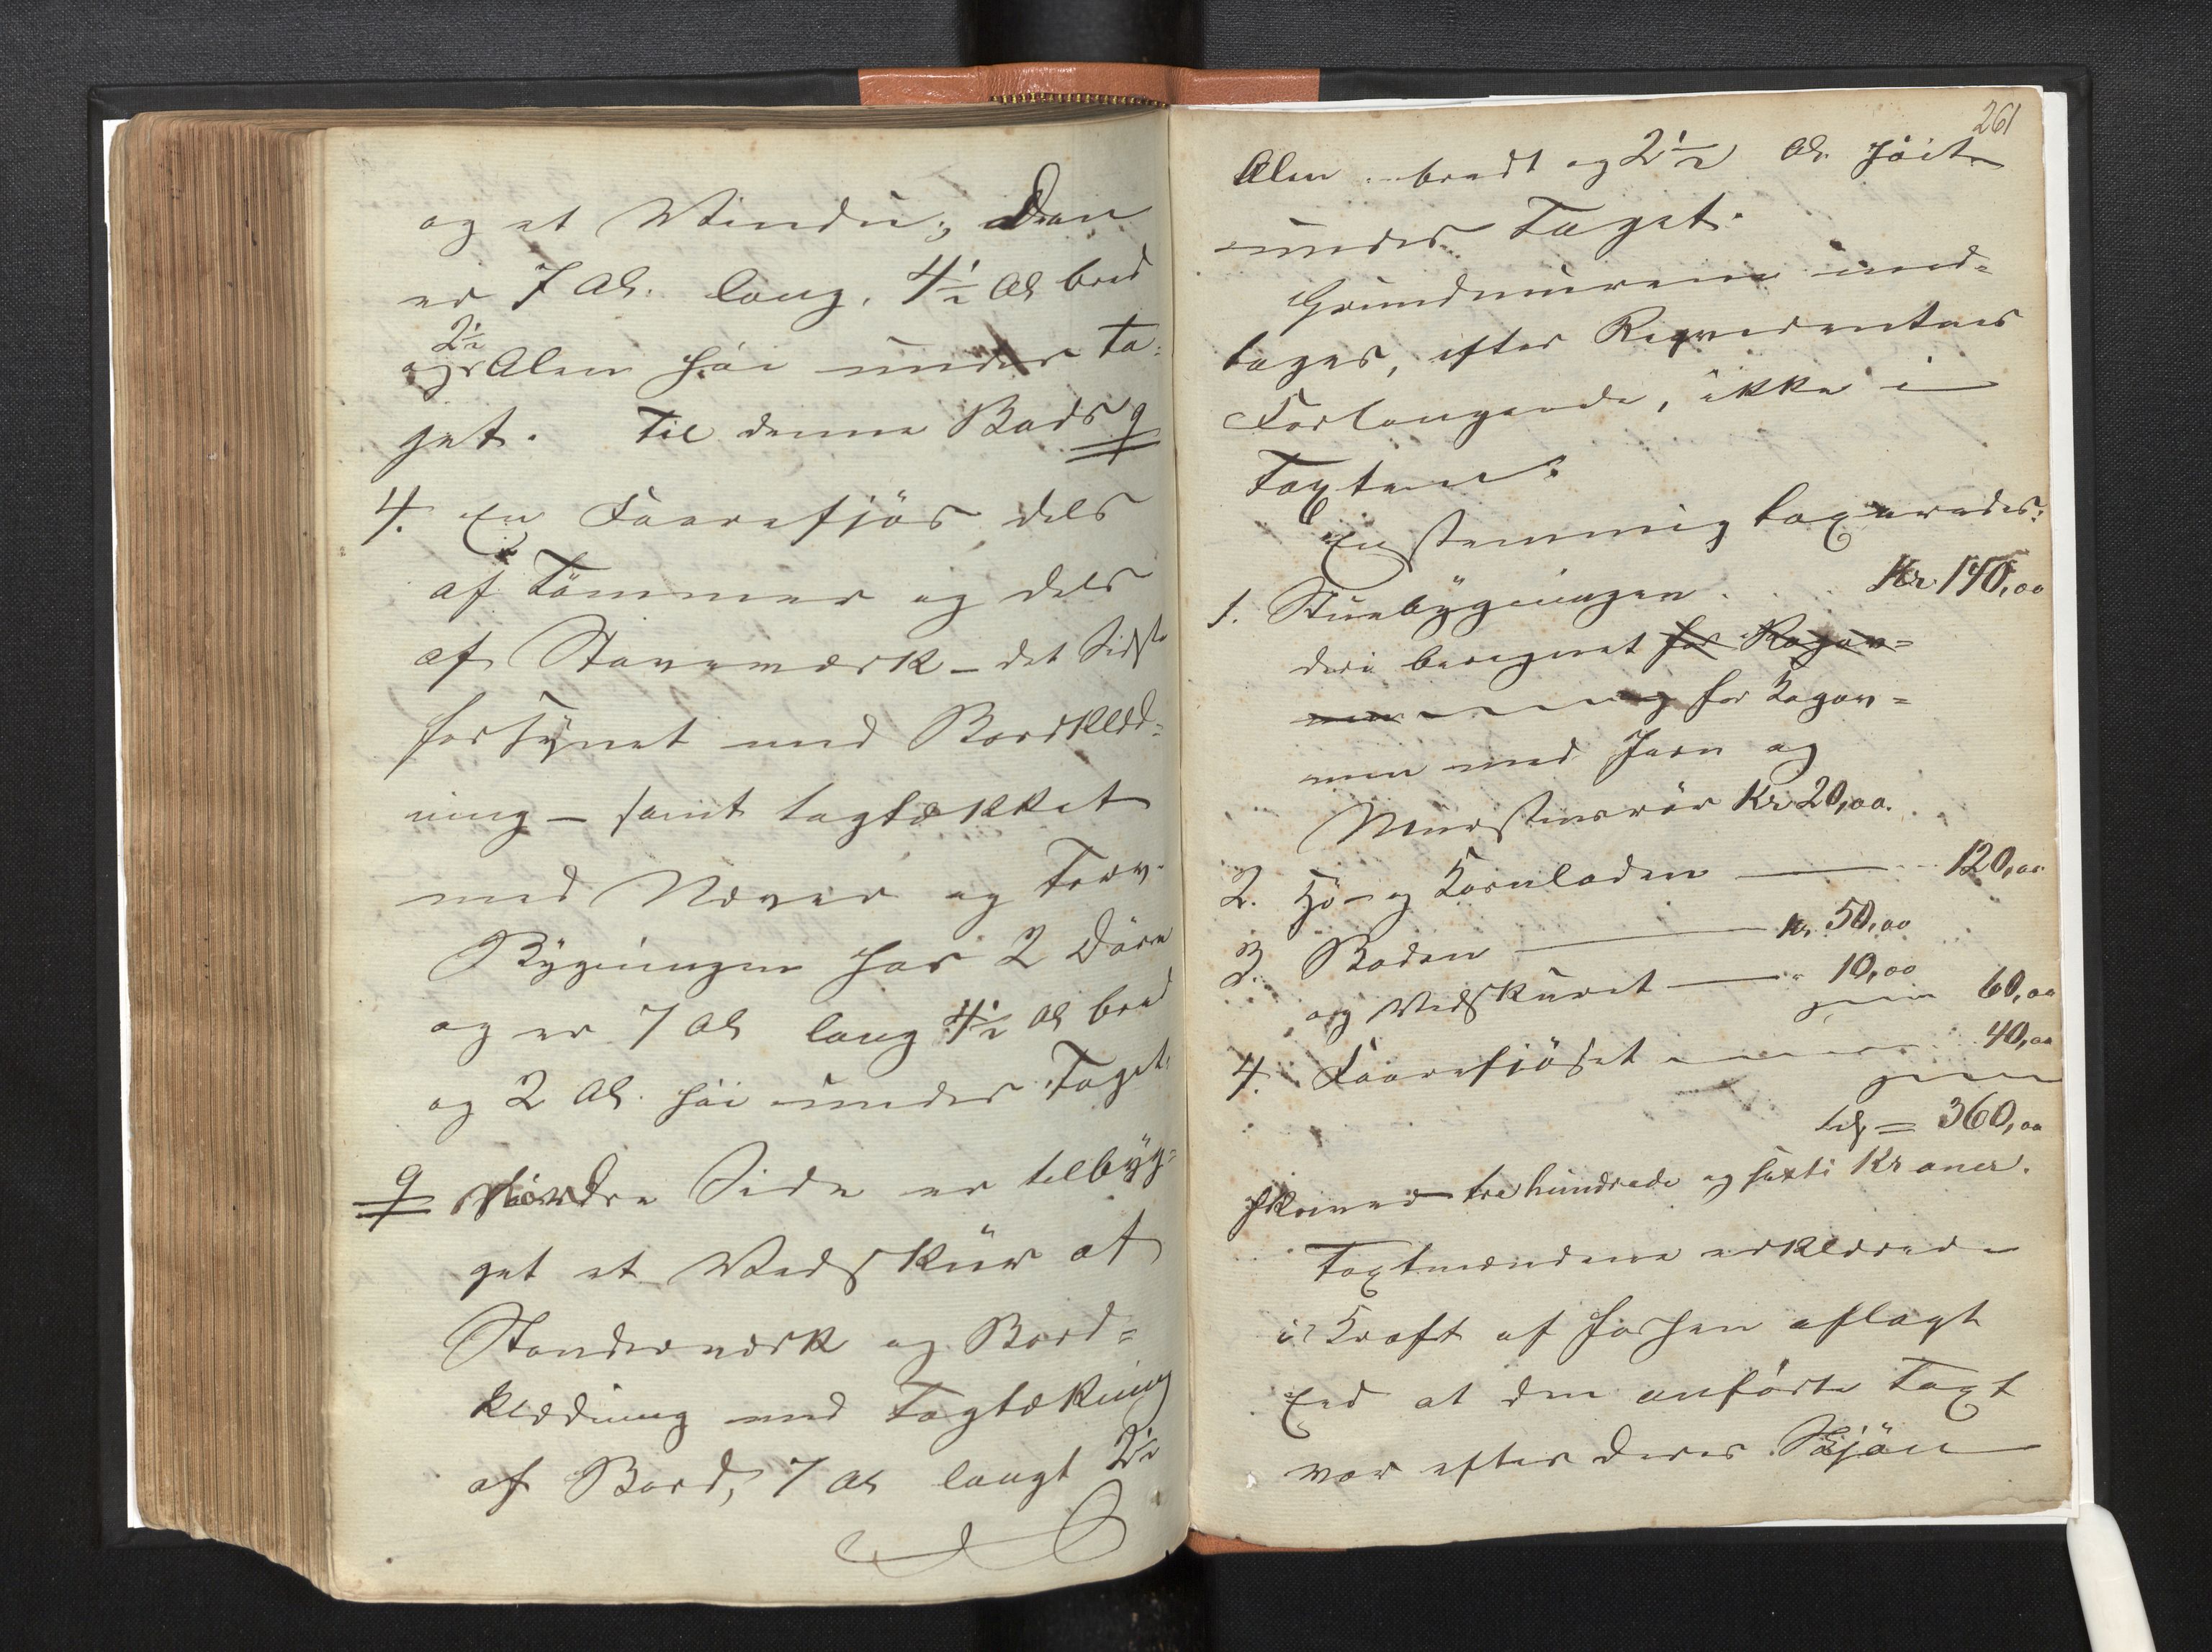 og et Vindu; den
er 7 Al. lang, 4½ Al bred
2½
og Alen høi under Ta-
get. Til denne Bods ꝗ
4. En Faarefjøs dels
af Tømmer og dels
af Stavværk – det Sidste
forsynet med Bordklæd-
ning – samt tagtækket
med Næver og Torv.
Bygningen har 2 Døre
og er 7 Al lang 4½ Al bred
og 2 Al. høi under Taget.
ꝗ Nordre Side er tilbyg-
get et Vedskur af
Standerværk og Bord-
klædning med Tagtækning
af Bord, 7 Al langt 2½
261
Alen bredt og 2½ Al. høit
under Taget.
Grundmurene med-
tages, efter Reqvirentens
Forlangende, ikke i
Taxten.
Enstemmig taxeredes:
1. Stuebygningen . . . Kr. 140,00
deri beregnet for Kogov-
nen for Kogov-
nen med Jern og
Murstensrør Kr 20,00.
2. Hø- og Kornladen — 120,00
3. Boden — Kr. 50,00
og Vedskuret — " 10,00
60,00
4. Faarefjøset 40,00
tils = 360,00
skriver tre hundrede og sexti Kroner.
Taxtmændene erklærede
i Kraft af forhen aflagt
Eed at den anførte Taxt
var efter deres Skjøn